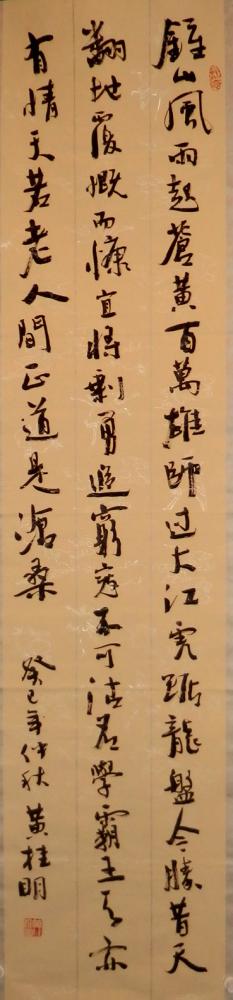 鍾山風雨起蒼黃百萬雄師过大江虎踞龍盤今勝昔天
翻地覆慨而慷宜将剩勇追窮寇不可沽名學霸王天亦
有情天若老人間正道是滄桑
癸巳年仲秋 黃桂明